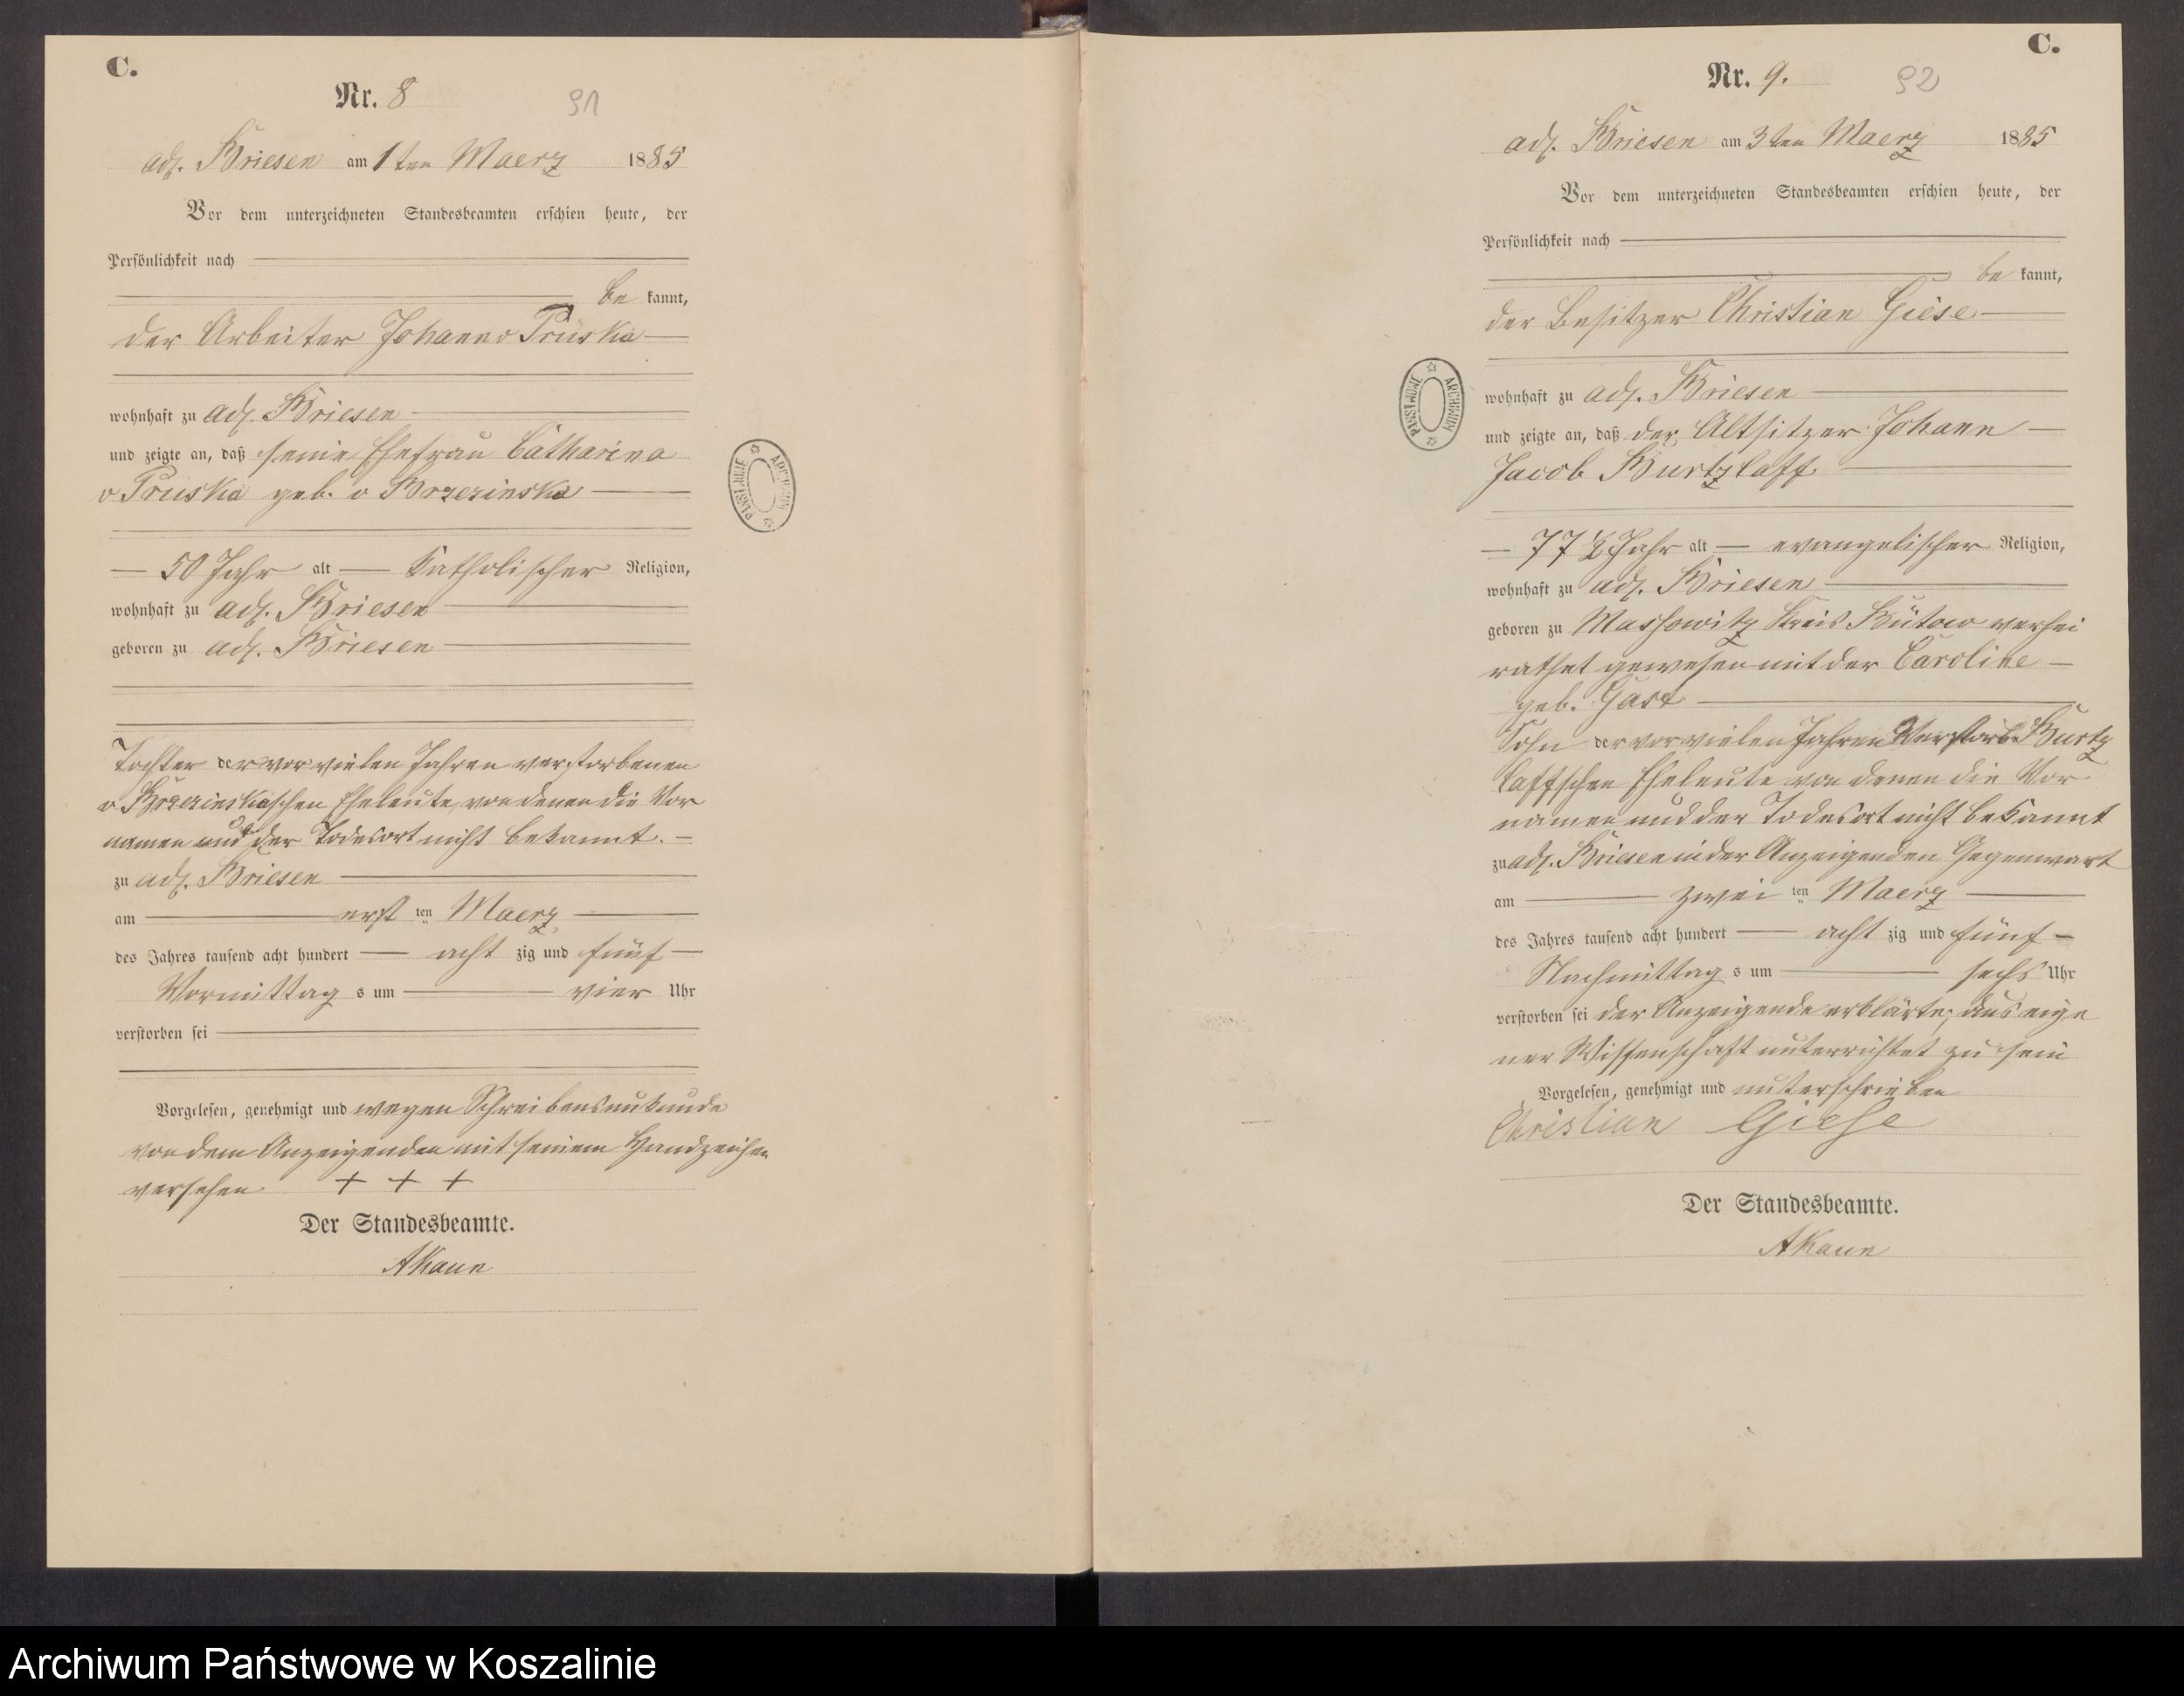 C.
Nr. 8
91
adl. Briesen am 1 ten Maerz 1885
Vor dem unterzeichneten Standesbeamten erschien heute, der
Persönlichkeit nach
be kannt,
der Arbeiter Johann v Pruska
wohnhaft zu adl. Briesen
und zeigte an, daß seine Ehefrau Catharina
v Pruska geb. v Brzezinska
50 Jahr alt katholischer Religion,
wohnhaft zu adl. Briesen
geboren zu adl. Briesen
Tochter der vor vielen Jahren verstorbenen
v Brzezinskaschen Eheleute, von denen die Vor
namen und der Todesort nicht bekannt.
zu adl. Briesen
am erst ten Maerz
des Jahres tausend acht hundert acht zig und fünf
Vormittag s um vier Uhr
verstorben sei
Vorgelesen, genehmigt und wegen Schreibensunkunde
von dem Anzeigenden mit seinem Handzeichen
versehen + + +
Der Standesbeamte.
AKaun
PAŃSTWOWE ARCHIWUM
C.
Nr. 9.
92
adl. Briesen am 3 ten Maerz 1885
Vor dem unterzeichneten Standesbeamten erschien heute, der
Persönlichkeit nach
be kannt,
der Besitzer Christian Giese
wohnhaft zu adl. Briesen
und zeigte an, daß der Altsitzer Johann
Jacob Kurtzlaff
77 1/2 Jahr alt evangelischer Religion,
wohnhaft zu adl. Briesen
geboren zu Massowitz Kreis Bütow verhei
rathet gewesen mit der Caroline
geb. Gast
Sohn der vor vielen Jahren verstorb. Kurtz
laffschen Eheleute von denen die Vor
namen und der Todesort nicht bekannt
zu adl. Briesen in der Anzeigenden Gegenwart
am zwei ten Maerz
des Jahres tausend acht hundert acht zig und fünf
Nachmittag s um sechs Uhr
verstorben sei der Anzeigende erklärte, aus eige
ner Wissenschaft unterrichtet zu sein
Vorgelesen, genehmigt und unterschrieben
Christian Giese
Der Standesbeamte.
AKaun
PAŃSTWOWE ARCHIWUM
Archiwum Państwowe w Koszalinie